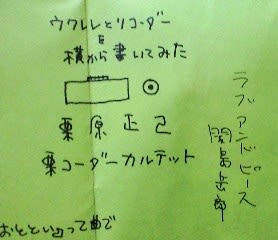 ウクレレとリコーダー
を
横から書いてみた
栗原正己
栗コーダーカルテット
ラブアンドピース
関島岳郎
おとといって曲で